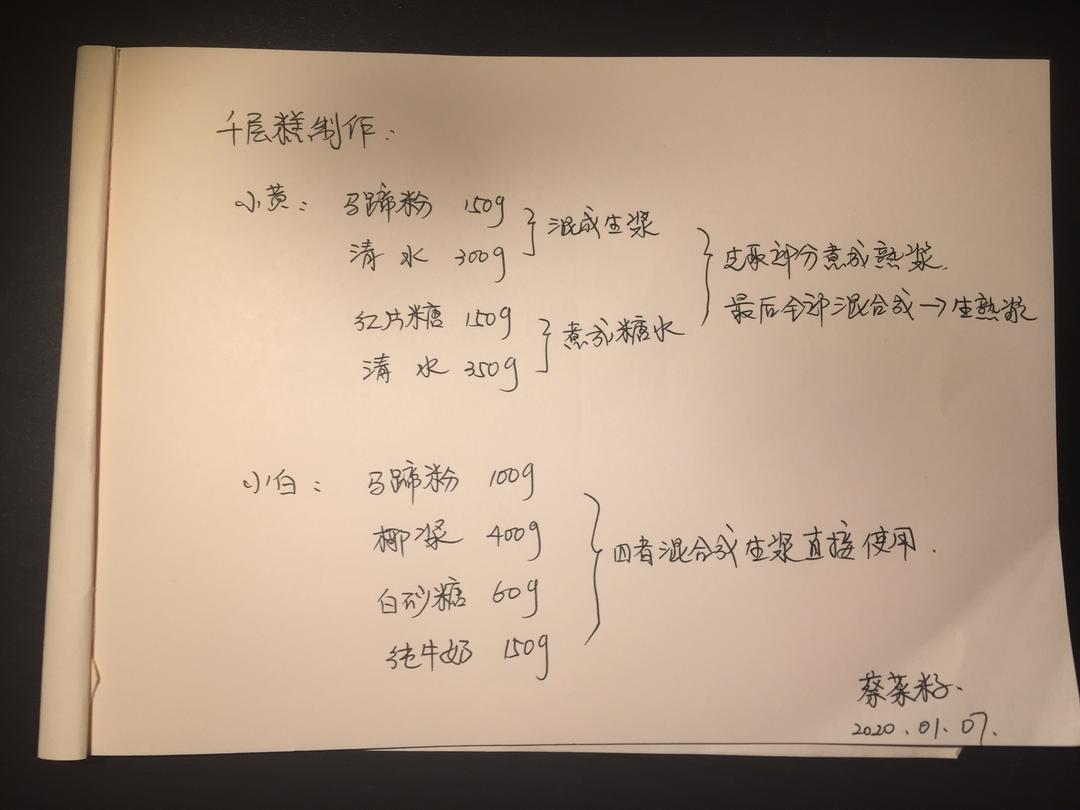 千层糕制作：
小黄： 马蹄粉 150g
清水 300g
混成生浆
红片糖 150g
清水 350g
煮成糖水
取部分煮成熟浆.
最后全部混合成→生熟浆
小白： 马蹄粉 100g
椰浆 400g
白砂糖 60g
纯牛奶 150g
四者混合成生浆直接使用.
蔡菜籽.
2020.01.07.